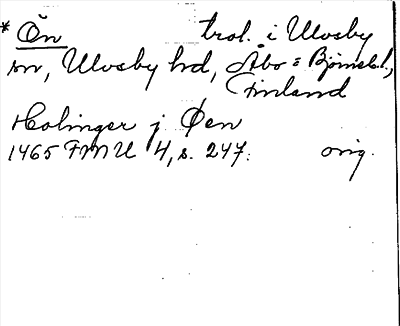 * Ön trol. i Ulvsby
sn, Ulvsby hd, Åbo o Björneb.l.,
Finland
Holinger j Øen
1465 FMU 4, s. 247. orig.